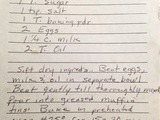 1 T. Sugar
1 tsp salt
1 T. baking pdr
2 Eggs
1 1/4 C. milk
2 T. Oil
Sift dry ingreds. Beat eggs,
milk & oil in separate bowl.
Beat gently till thoroughly mixed
Pour into greased muffin
tins! Bake in preheated